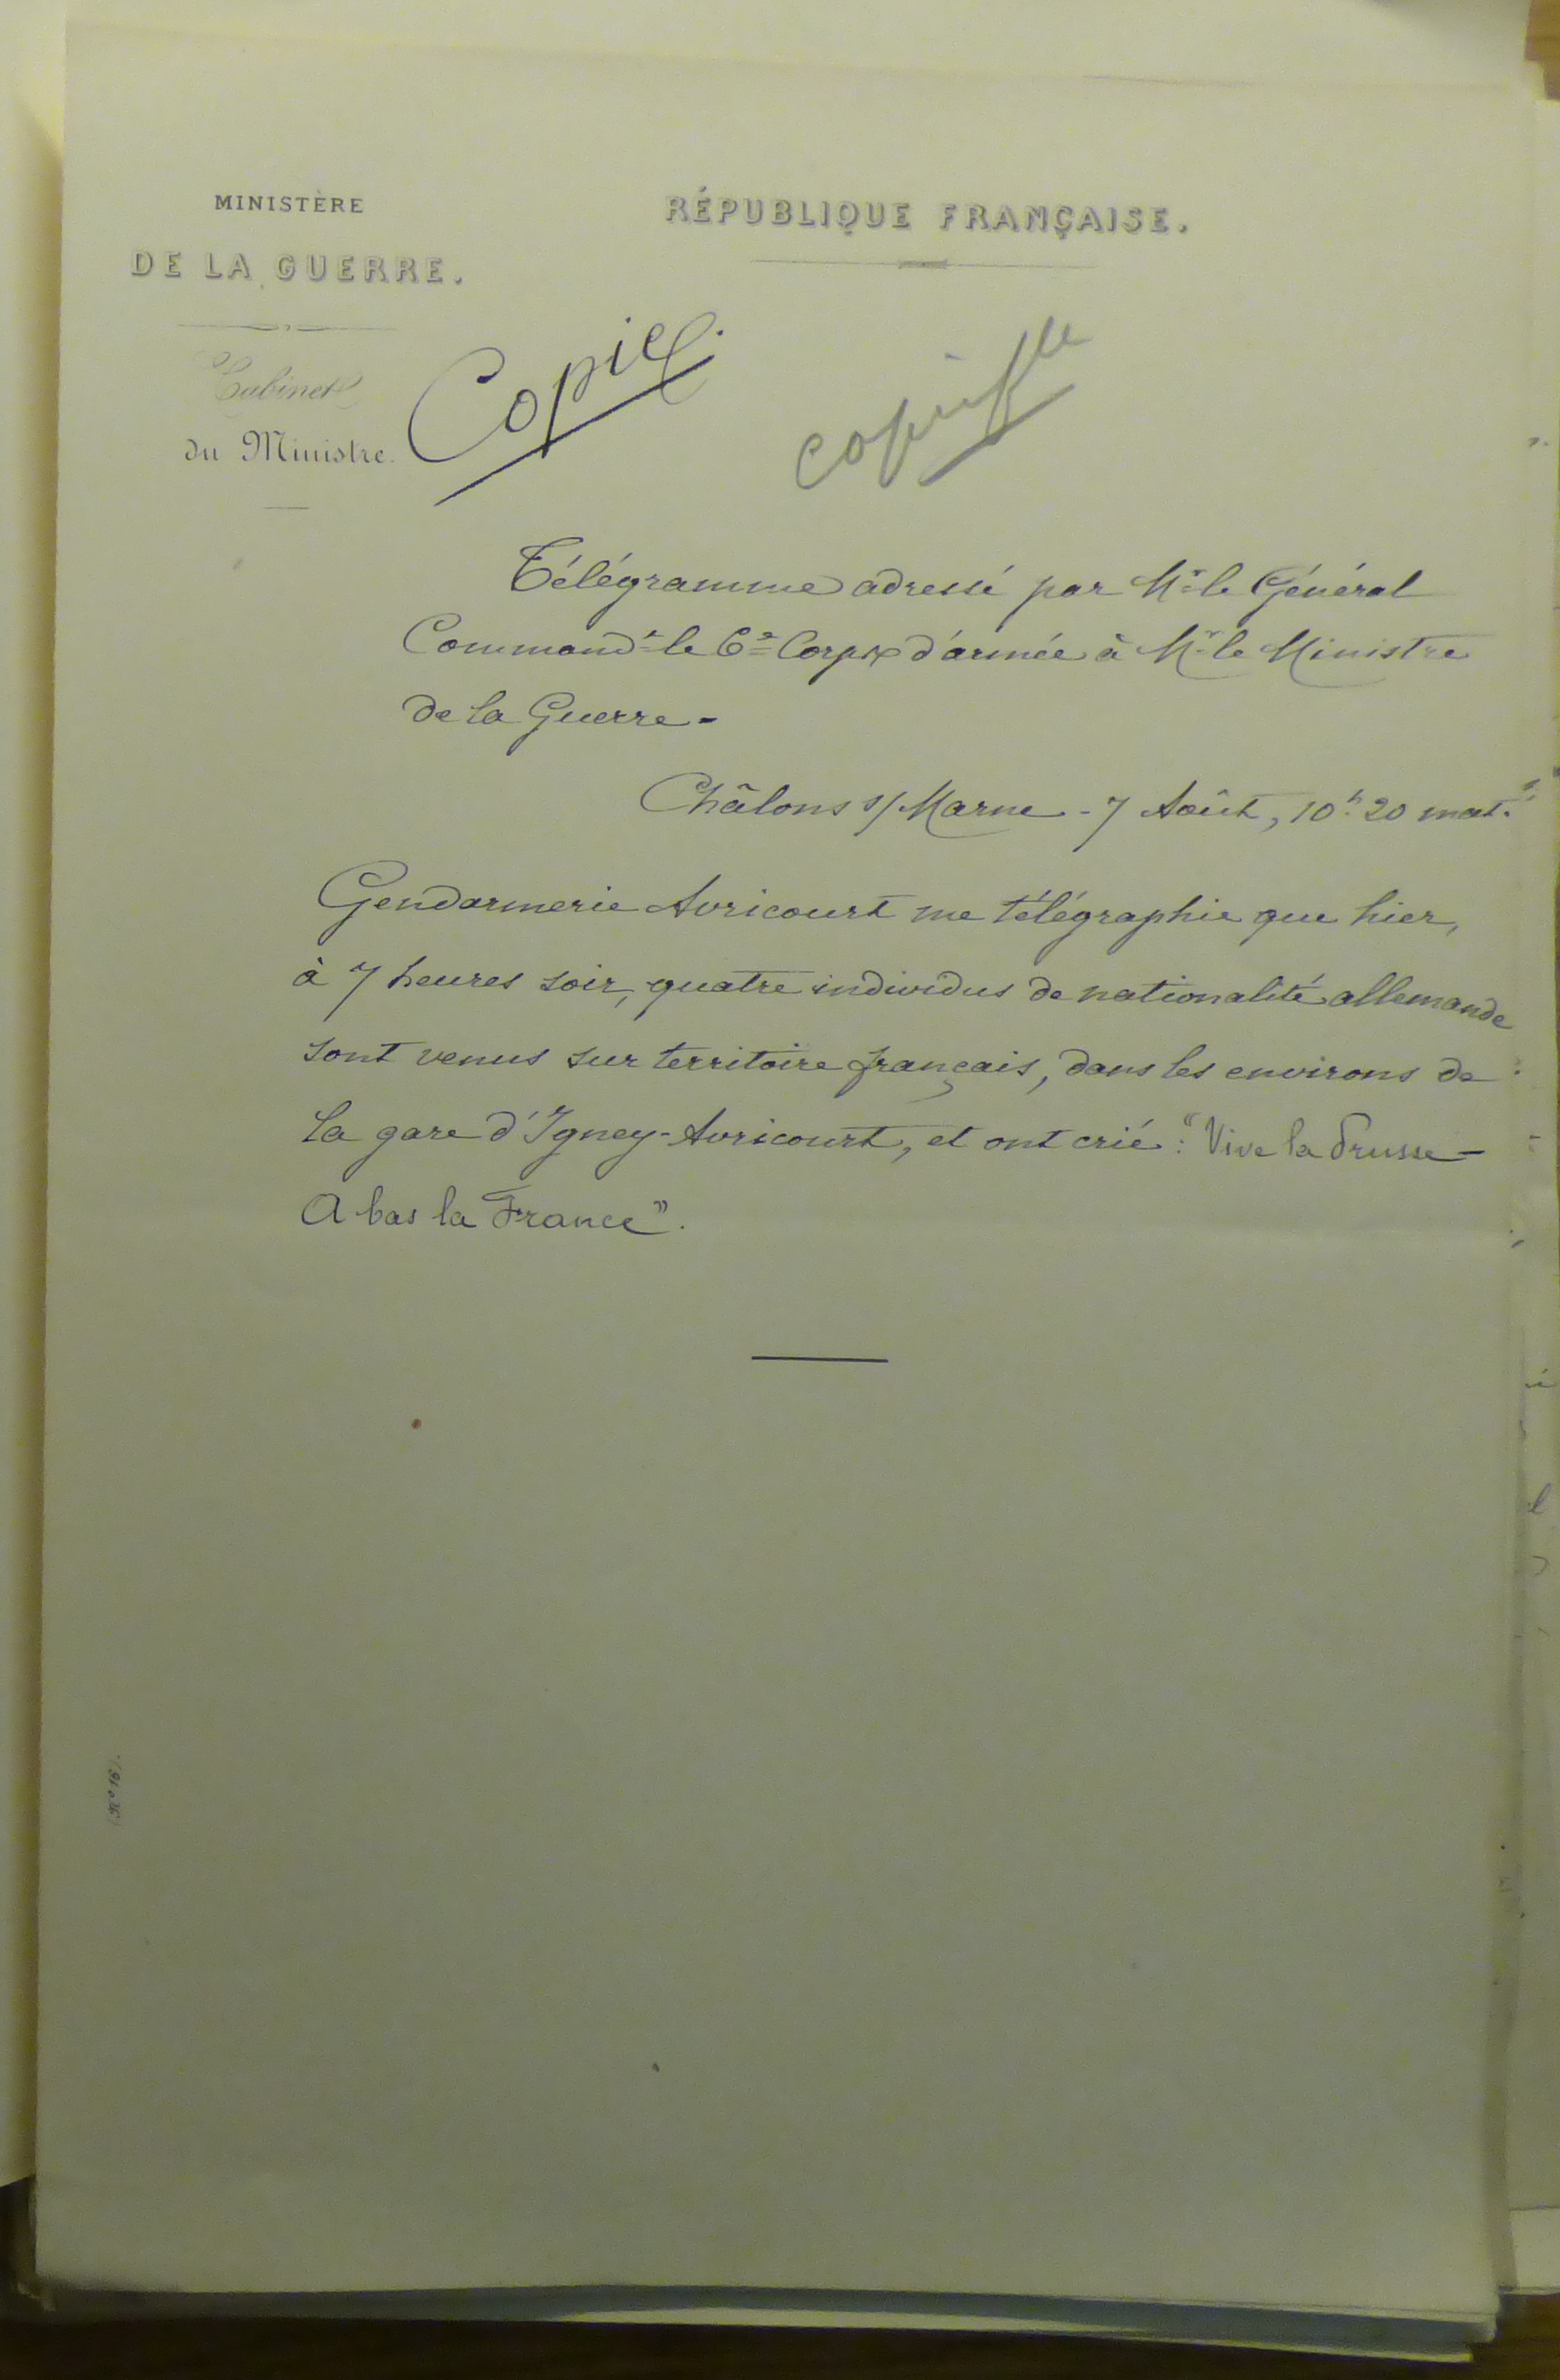 MINISTÈRE
DE LA GUERRE.
Cabinet
du Ministre.
RÉPUBLIQUE FRANÇAISE.
Copie.
Télégramme adressé par Mr le Général
Commandt le 6e Corps d'armée à Mr le Ministre
de la Guerre.
Châlons s/Marne - 7 Août, 10h 20 mat.
Gendarmerie Avricourt me télégraphie que hier,
à 7 heures soir, quatre individus de nationalité allemande
sont venus sur territoire français, dans les environs de
la gare d'Igney-Avricourt, et ont crié : "Vive la Prusse -
A bas la France".